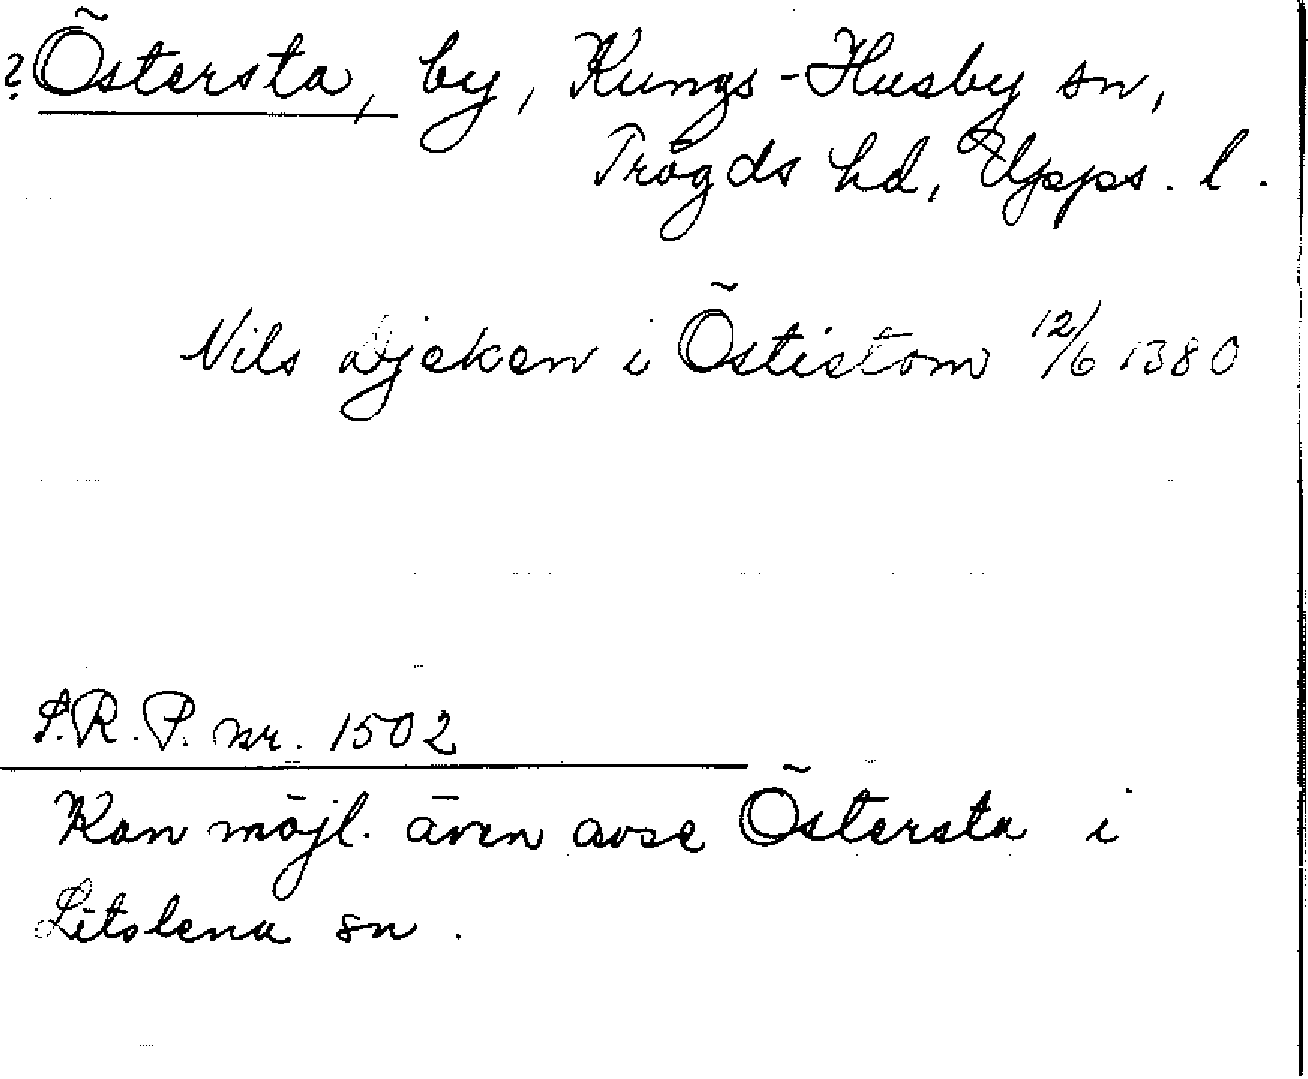 ? Östersta, by, Kungs-Husby sn,
Trögds hd, Upps. l.
Nils djeken i Östistom 12/6 1380
S.R.P. nr. 1502
Kan möjl. även avse Östersta i
Litslena sn.